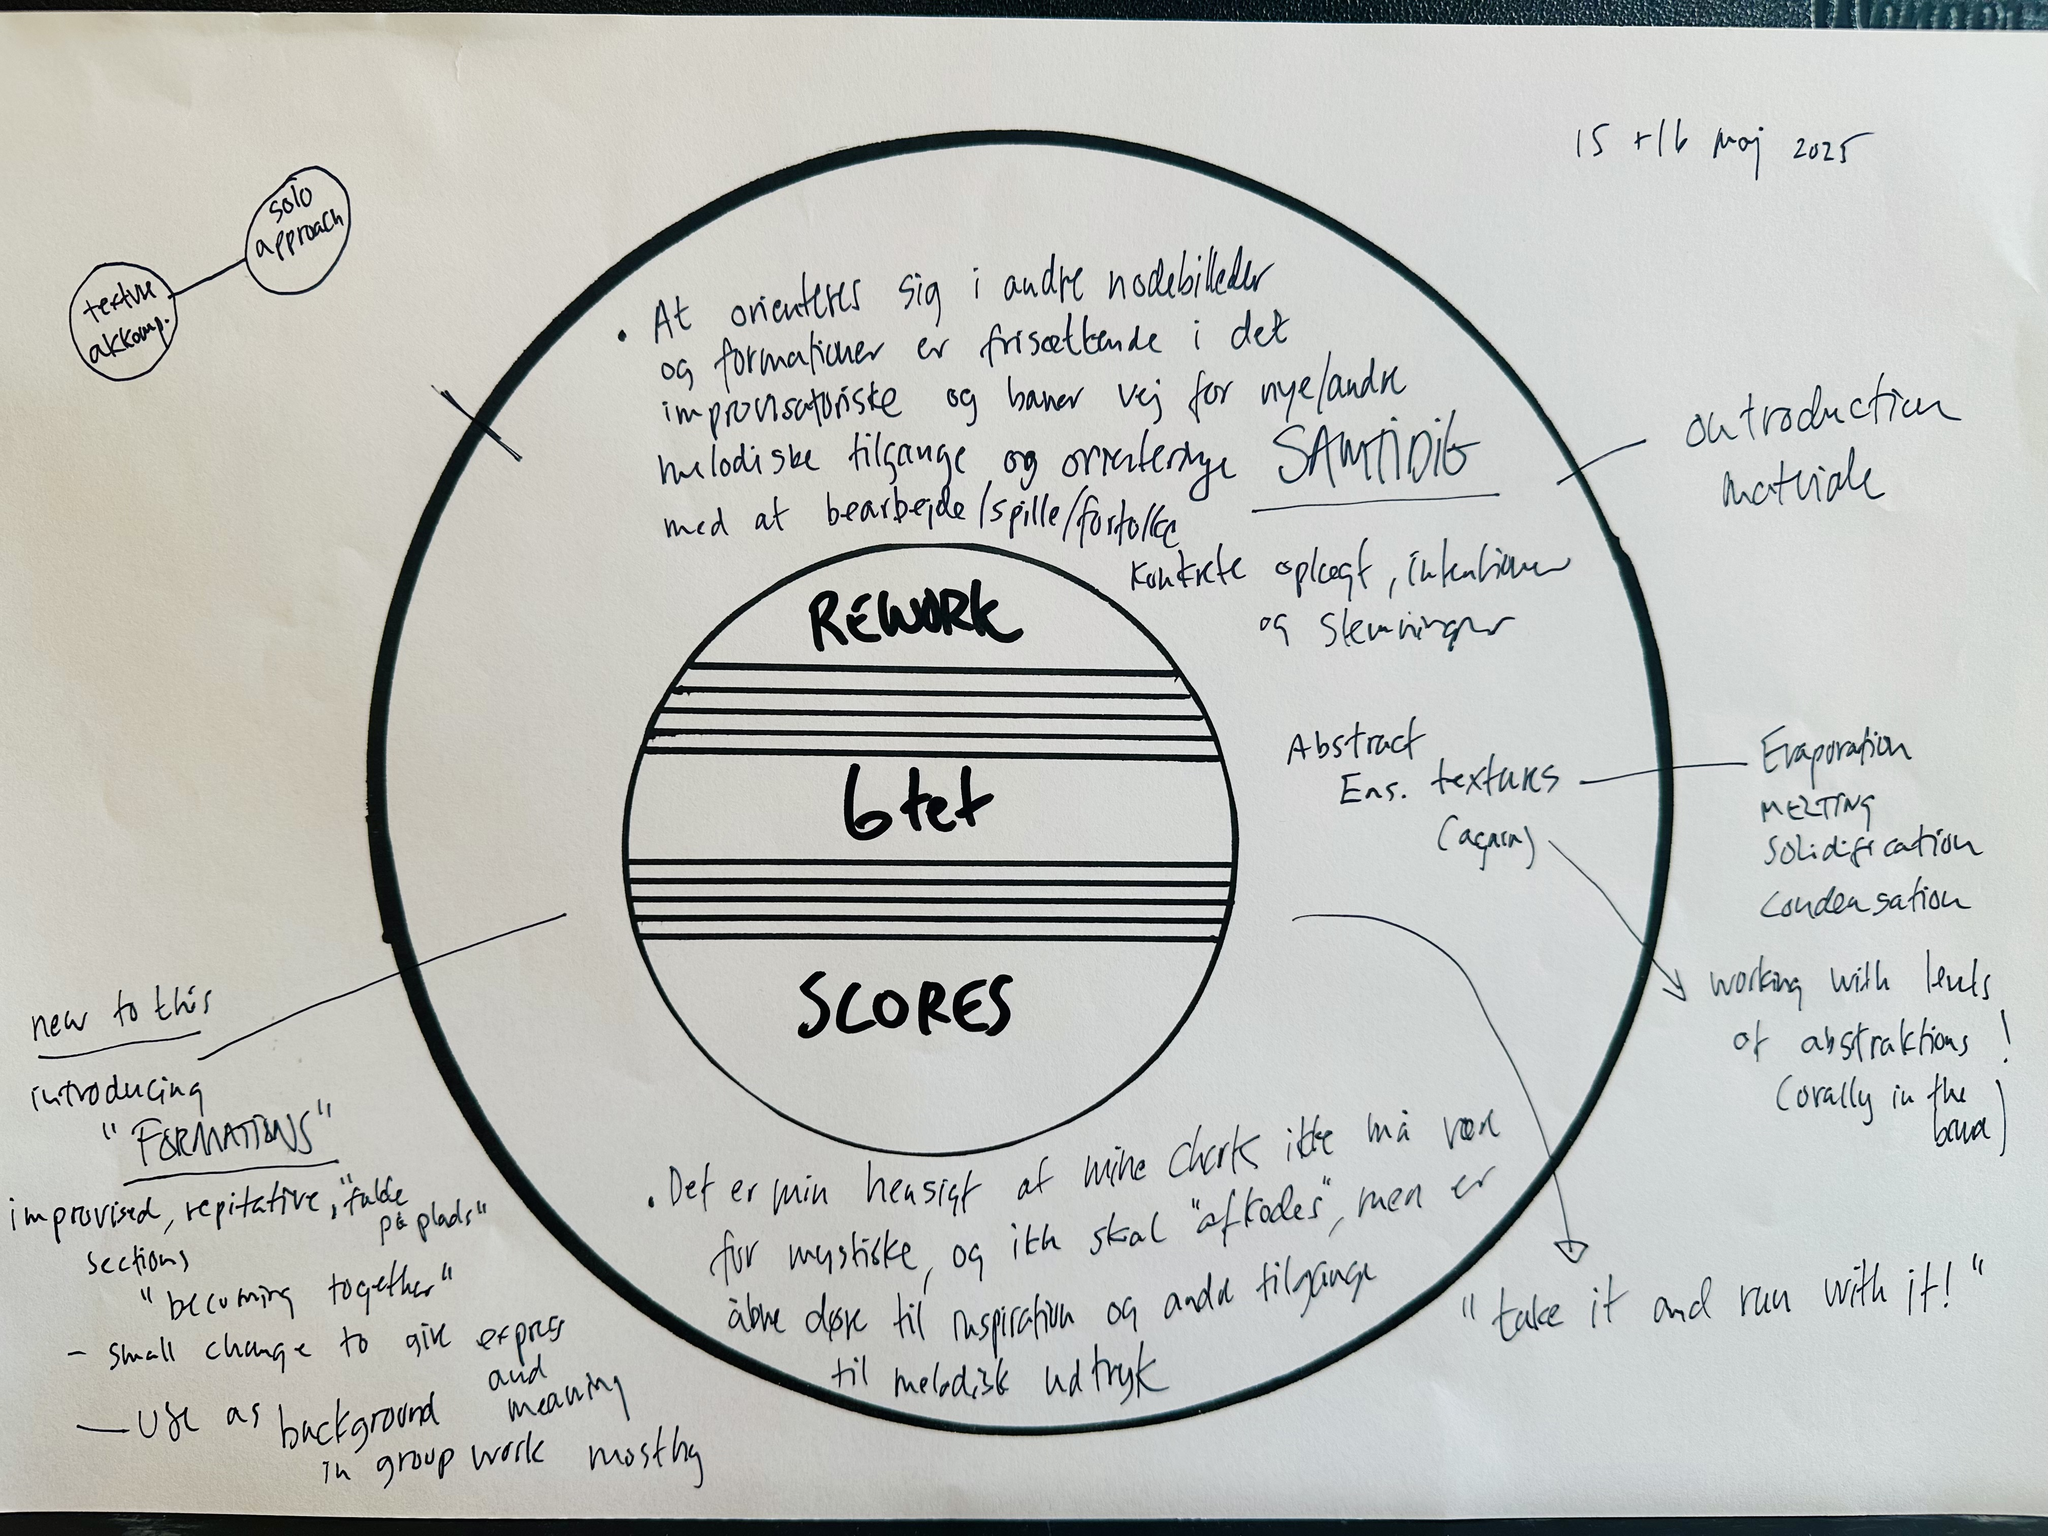 15 + 16 maj 2025
solo
approach
texture
akkomp.
• At orienteres sig i andre nodebilleder
og formationer er frisættende i det
improvisatoriske og baner vej for nye/andre
melodiske tilgange og orienteringe SAMTIDIG
med at bearbejde/spille/fortolke
konkrete oplægt, intentioner
og stemninger
outroduction
materiale
REWORK
6tet
SCORES
Abstract
Ens. textures
(again)
Evaporation
MELTING
Solidification
Condensation
working with levels
of abstraktions !
(orally in the
band)
new to this
introducing
"FORMATIONS"
improvised, repitative, "falde
på plads"
sections
"becoming together"
- small change to give expres
and
meaning
- Use as background
in group work mostly
• Det er min hensigt at mine charts ikke må være
for mystiske, og ikk skal "afkodes", men er
åbne døre til inspiration og andre tilgange
til melodisk udtryk
"take it and run with it!"